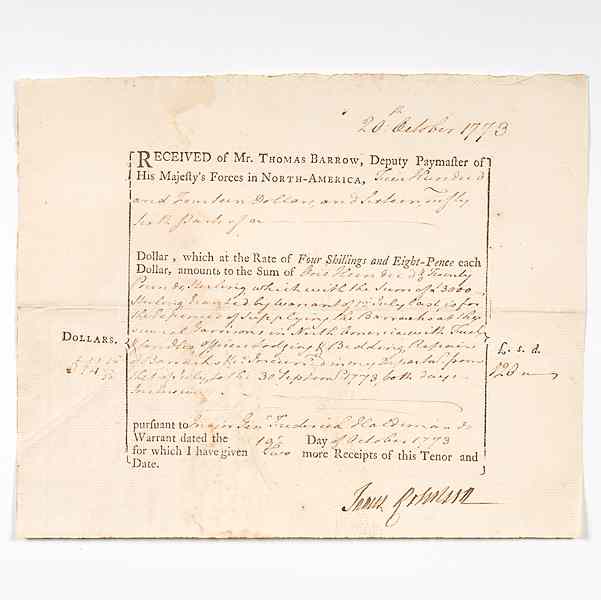 20th October 1773
RECEIVED of Mr. THOMAS BARROW, Deputy Paymaſter of
His Majeſty's Forces in NORTH-AMERICA, Five Hundred
and Fourteen Dollars and Sixteen Fifty
sixth Parts of a
Dollar, which at the Rate of Four Shillings and Eight-Pence each
Dollar, amounts to the Sum of One Hundred & Twenty
Pounds Sterling which with the Sum of £3000
Sterling Granted by Warrant of July last, is for
the Expences of Supplying the Barracks at the
several Garrisons in North America with Fuel
Candles, Officers Lodging & Bedding, Repairs
of Barracks &
DOLLARS.
514 16/56
£. s. d.
120
30 Septemr. 1773 both days
Inclusive
pursuant to Major Genl. Frederick Haldimand's
Warrant dated the 19th Day of October 1773
for which I have given two more Receipts of this Tenor and
Date.
James Robertson